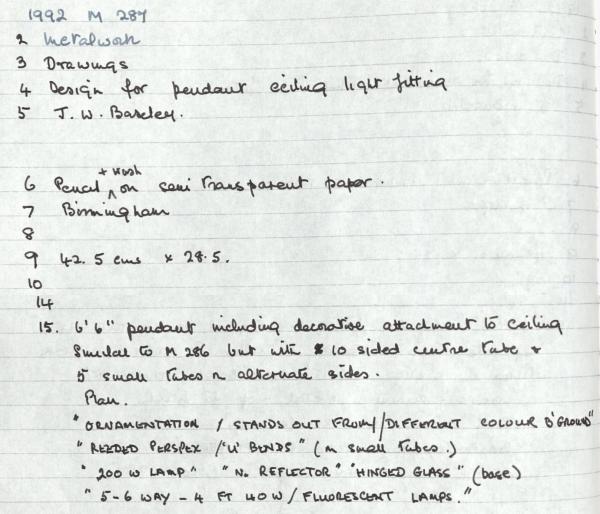 1992 M 287
2 Metalwork
3 Drawings
4 Design for pendant ceiling light fitting
5 J. W. Baseley.
6 Pencil + wash on semi transparent paper.
7 Birmingham
8
9 42.5 cms x 28.5.
10
14
15. 6'6" pendant including decorative attachment to ceiling
Similar to M 286 but with 10 sided centre tube +
5 small tubes on alternate sides.
Plan.
"ORNAMENTATION / STANDS OUT FROM / DIFFERENT COLOUR B'GROUND"
"REEDED PERSPEX / 'U' BENDS" (on small tubes.)
"200 W LAMP" "No. REFLECTOR" "HINGED GLASS" (base)
"5-6 WAY - 4 FT 40 W / FLUORESCENT LAMPS."